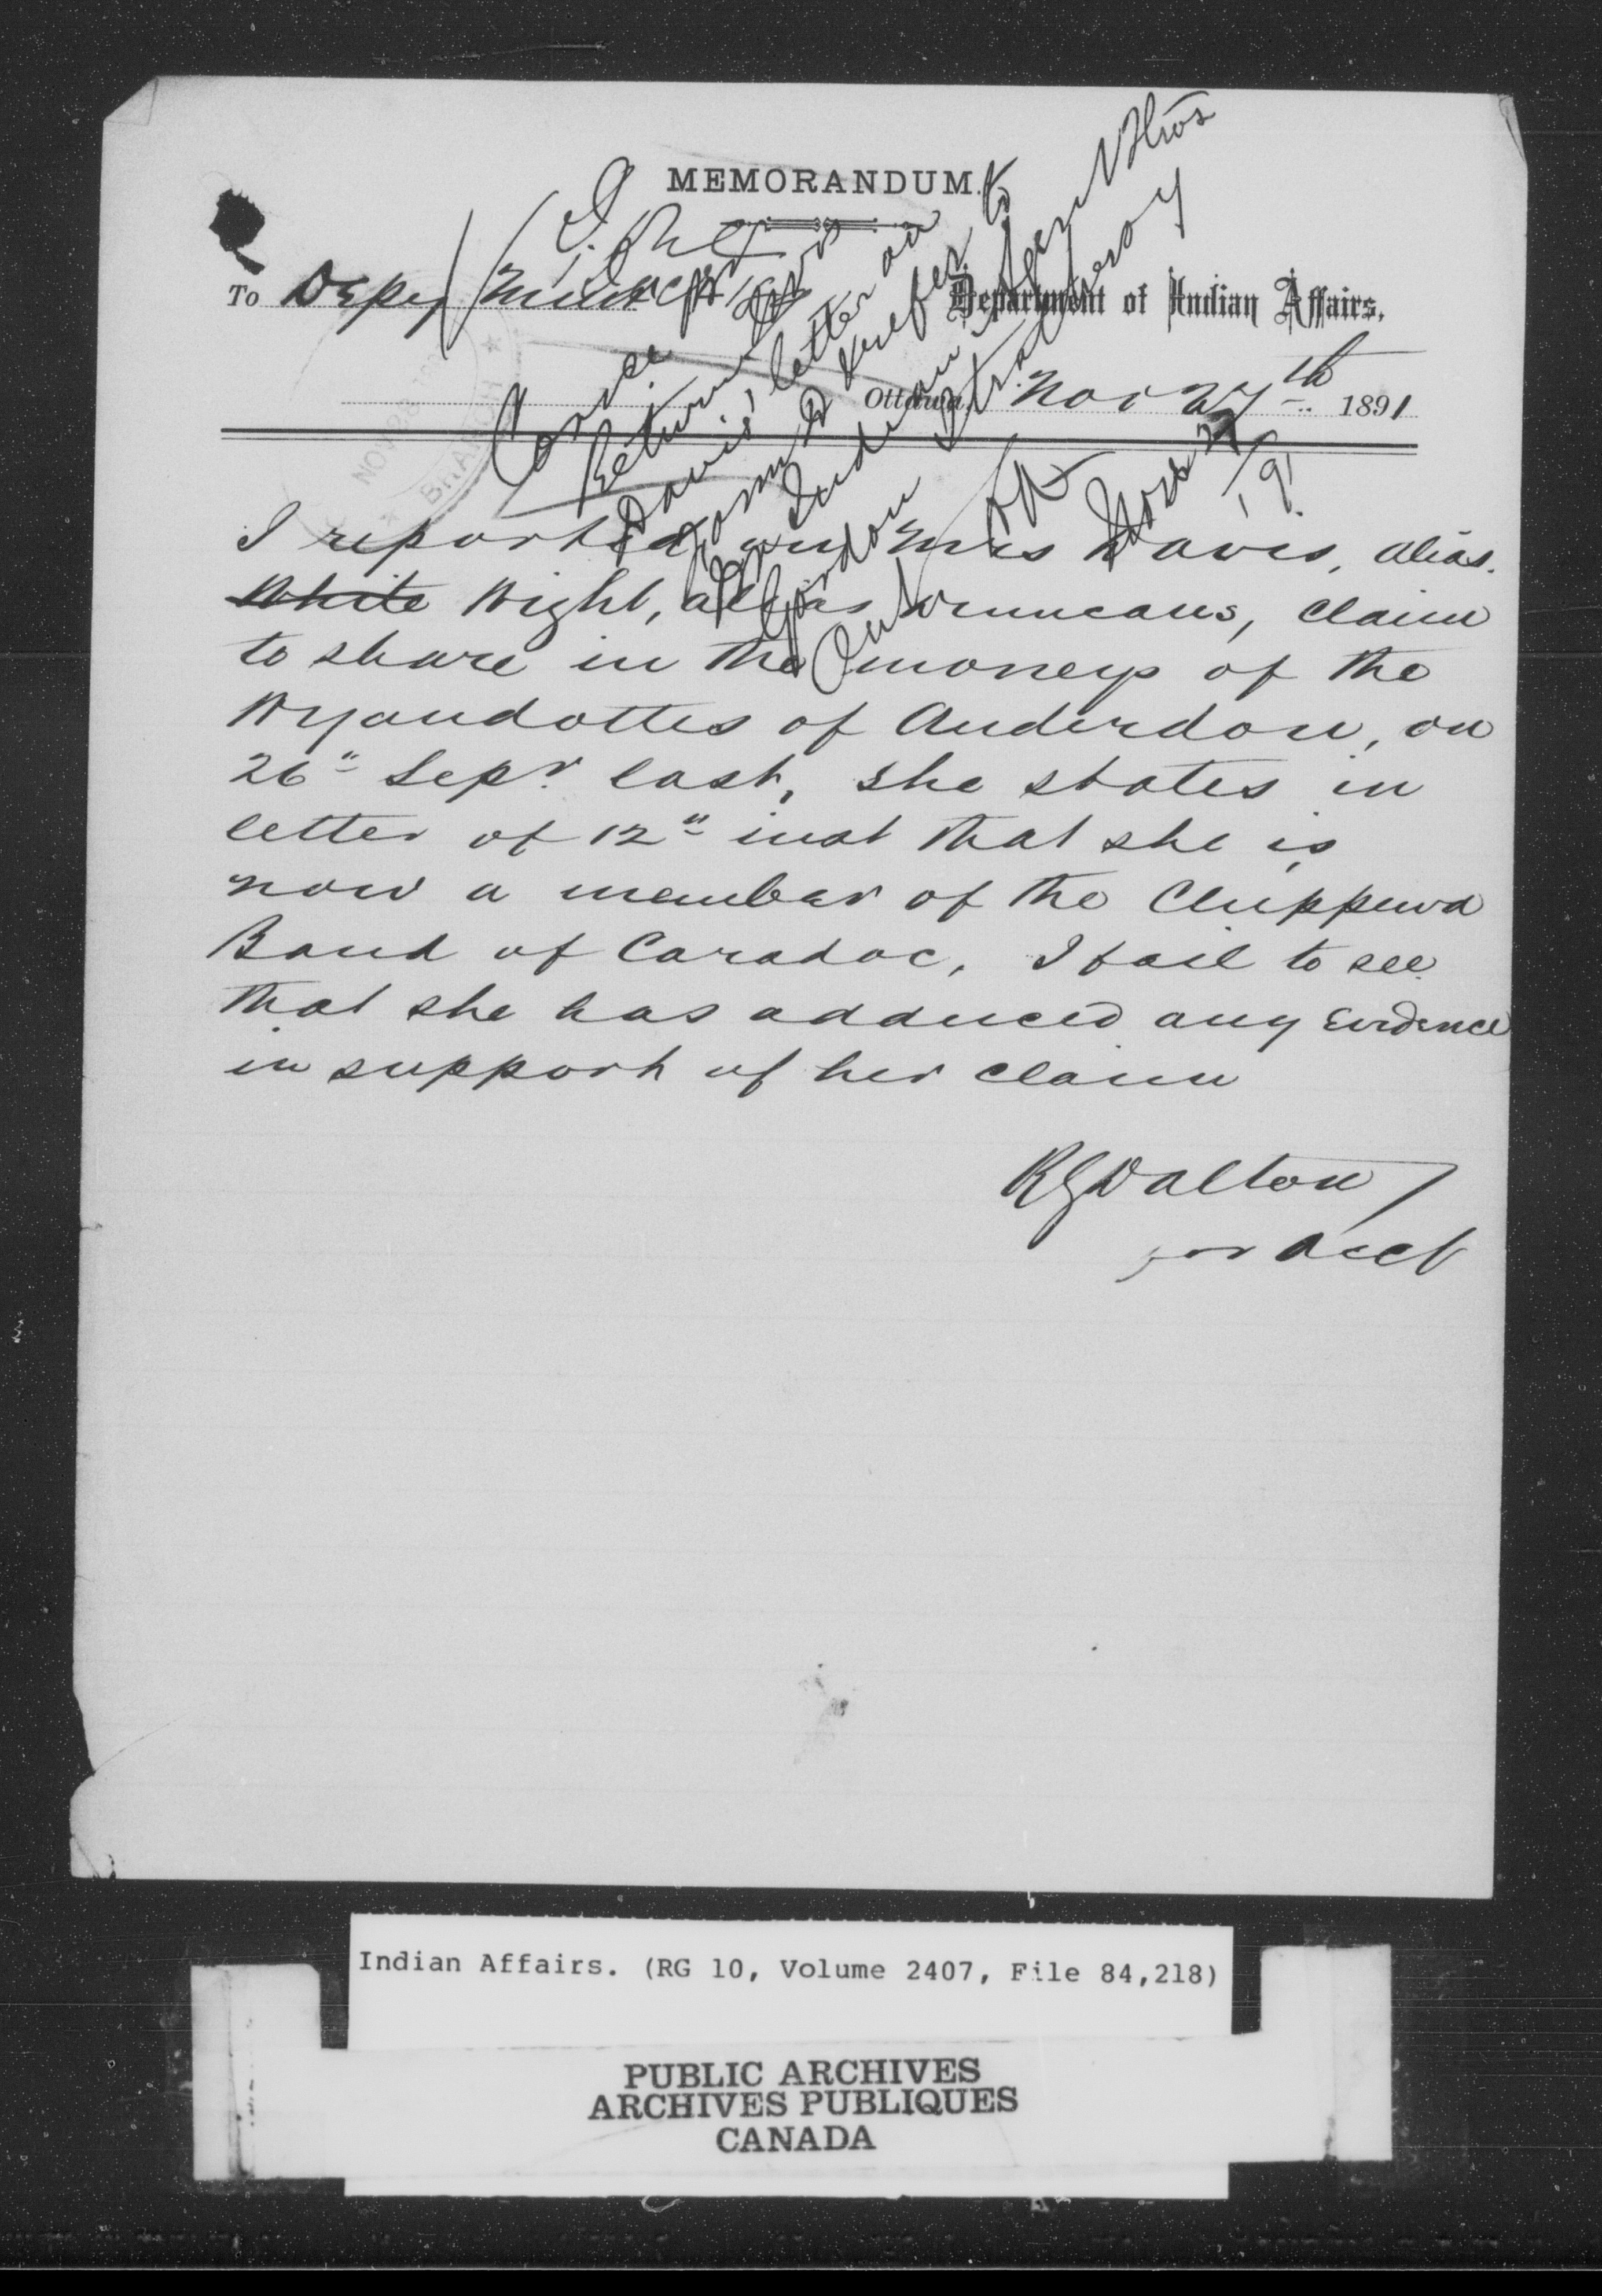 MEMORANDUM.
To Depy Minister
Department of Indian Affairs,
Ottawa, Nov 27th 1891
I reported on Mrs Davis, alias.
White Wight, alias Duncans, claim
to share in the moneys of the
Wyandottes of Anderdon, on
26" Sepr. last, she states in
letter of 12" inst that she is
now a member of the Chippewa
Band of Caradoc, I fail to see
that she has adduced any Evidence
in support of her claim
RGDalton
for Acct
Corsce
Return Mrs
Davis' letter on
to
Indian
Gordon Strathroy
Nov 27
/91
NOV 28
BRANCH
Indian Affairs. (RG 10, Volume 2407, File 84,218)
PUBLIC ARCHIVES
ARCHIVES PUBLIQUES
CANADA